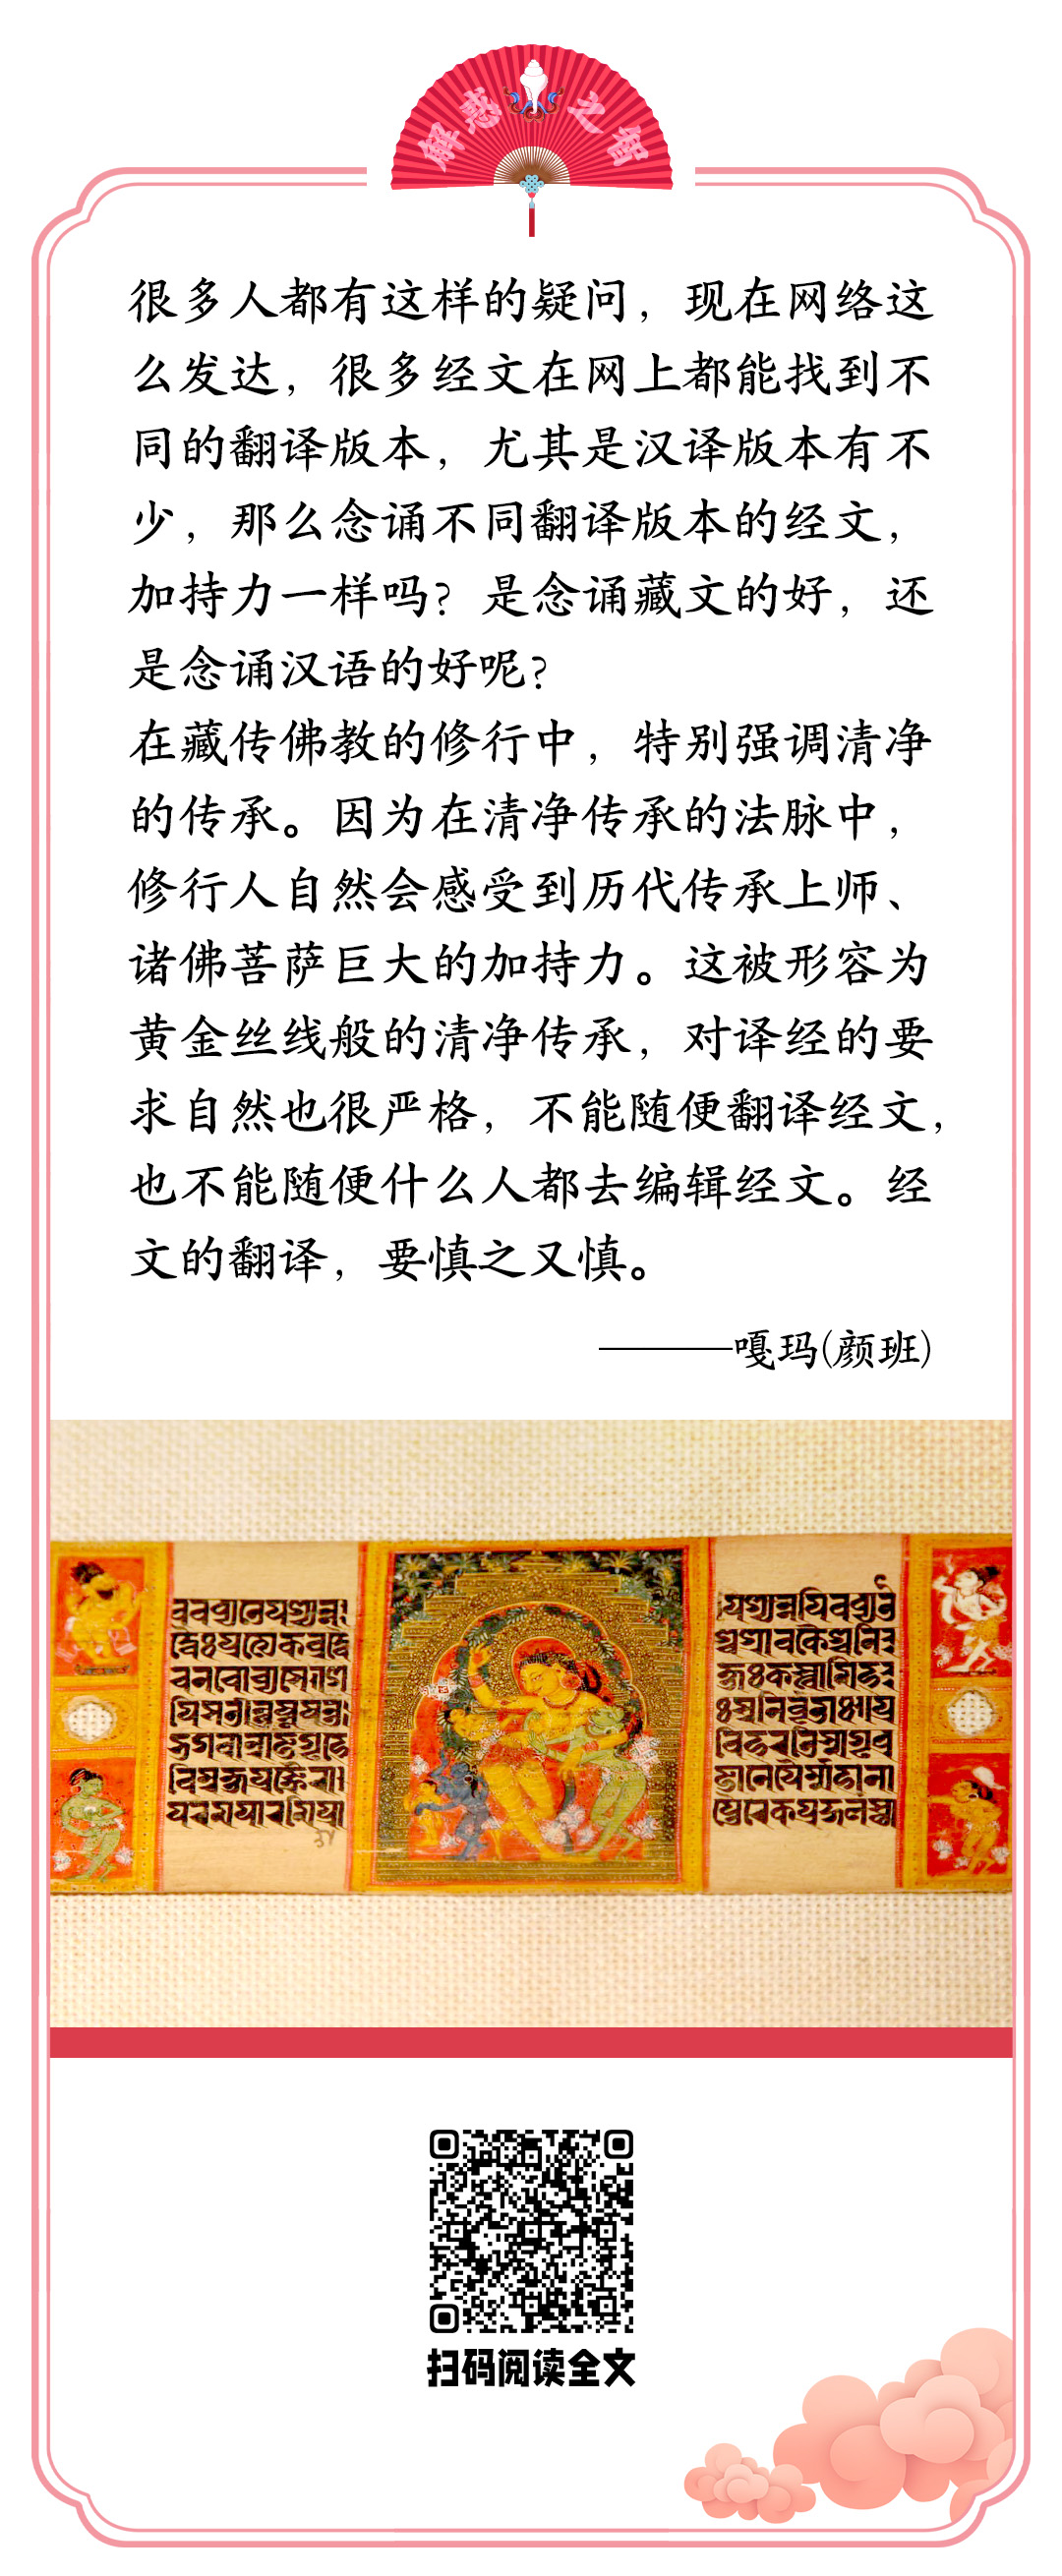 解惑之智
很多人都有这样的疑问，现在网络这
么发达，很多经文在网上都能找到不
同的翻译版本，尤其是汉译版本有不
少，那么念诵不同翻译版本的经文，
加持力一样吗？是念诵藏文的好，还
是念诵汉语的好呢？
在藏传佛教的修行中，特别强调清净
的传承。因为在清净传承的法脉中，
修行人自然会感受到历代传承上师、
诸佛菩萨巨大的加持力。这被形容为
黄金丝线般的清净传承，对译经的要
求自然也很严格，不能随便翻译经文，
也不能随便什么人都去编辑经文。经
文的翻译，要慎之又慎。
———嘎玛(颜班)
扫码阅读全文